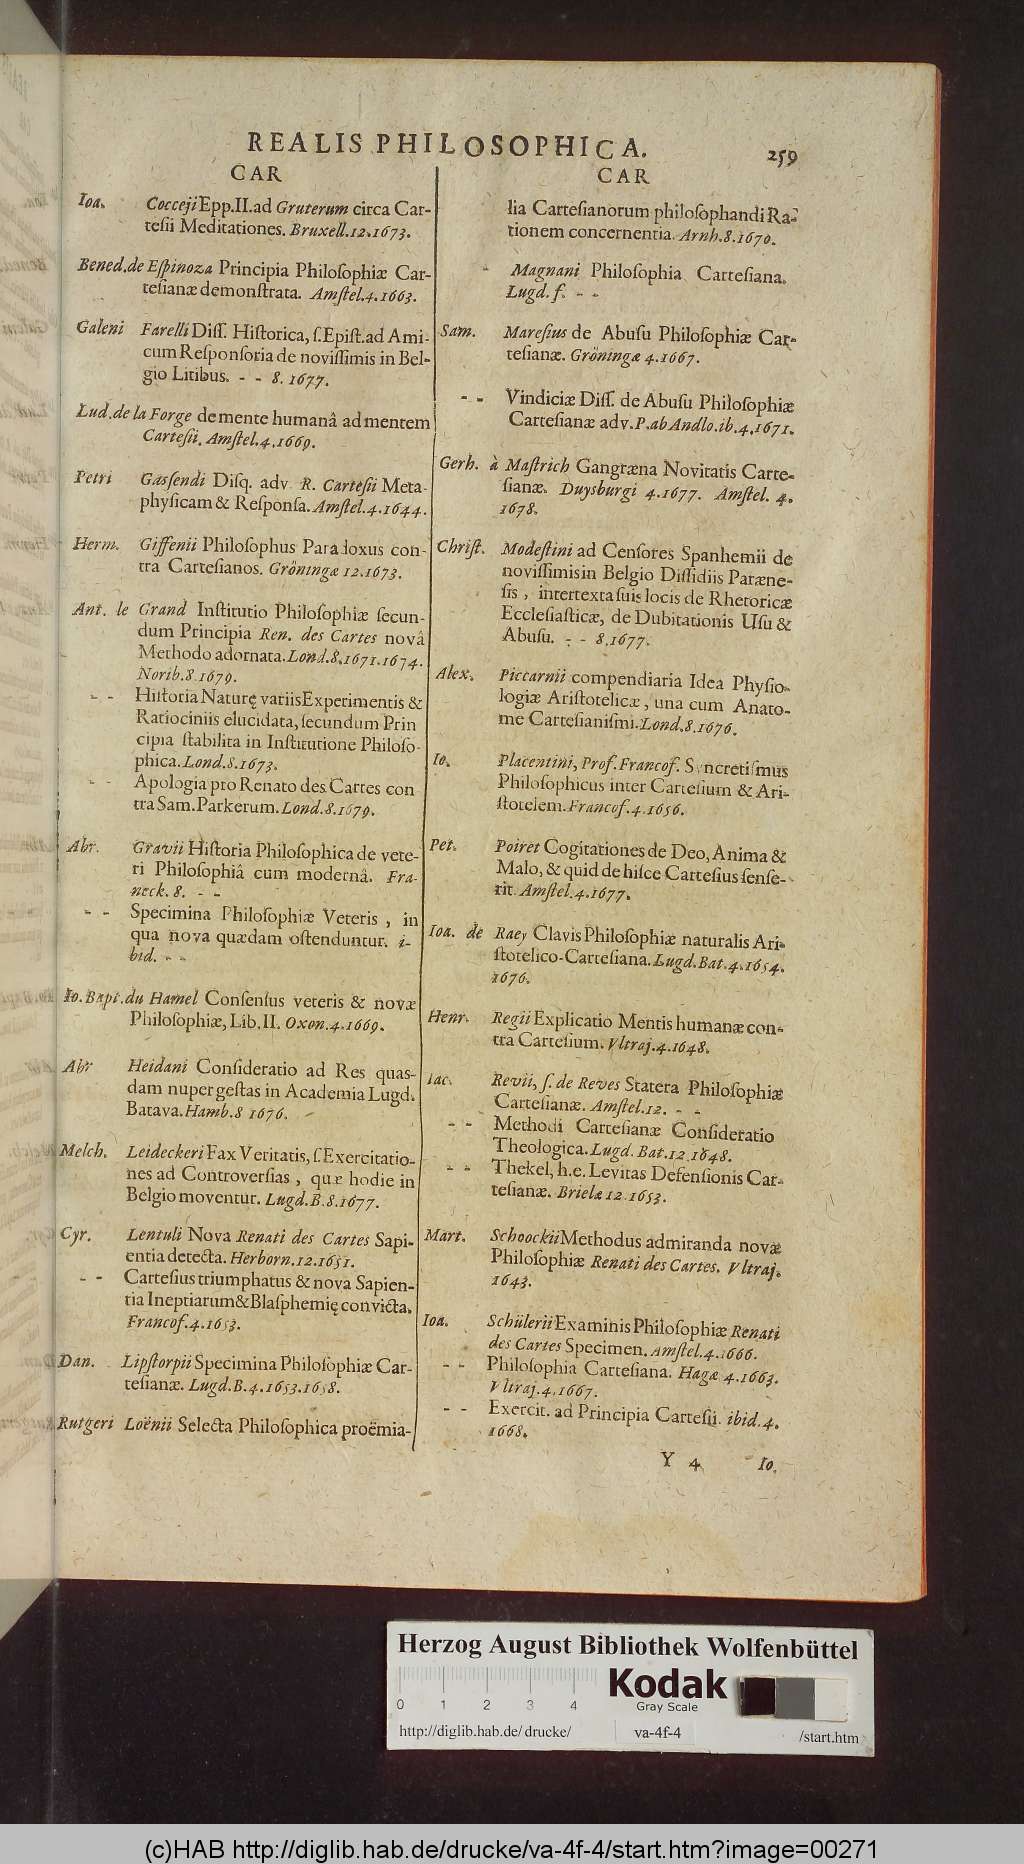 REALIS PHILOSOPHICA. 259
CAR
Ioa. Cocceji Epp. II. ad Gruterum circa Car-
tesii Meditationes. Bruxell. 12. 1673.
Bened. de Espinoza Principia Philosophiæ Car-
tesianæ demonstrata. Amstel. 4. 1663.
Galeni Farelli Diss. Historica, s. Epist. ad Ami-
cum Responsoria de novissimis in Bel-
gio Litibus. - - 8. 1677.
Lud. de la Forge de mente humanâ ad mentem
Cartesii. Amstel. 4. 1669.
Petri Gassendi Disq. adv. R. Cartesii Meta-
physicam & Responsa. Amstel. 4. 1644.
Herm. Giffenii Philosophus Paradoxus con-
tra Cartesianos. Gröningæ 12. 1673.
Ant. le Grand Institutio Philosophiæ secun-
dum Principia Ren. des Cartes novâ
Methodo adornata. Lond. 8. 1671. 1674.
Norib. 8 1679.
- - Historia Naturę variis Experimentis &
Ratiociniis elucidata, secundum Prin
cipia stabilita in Institutione Philoso-
phica. Lond. 8. 1673.
- - Apologia pro Renato des Cartes con
tra Sam. Parkerum. Lond. 8. 1679.
Abr. Gravii Historia Philosophica de vete-
ri Philosophiâ cum modernâ. Fra-
neck. 8. - -
- - Specimina Philosophiæ Veteris, in
qua nova quædam ostenduntur. i-
bid. - -
Io. Bapt. du Hamel Consensus veteris & novæ
Philosophiæ, Lib. II. Oxon. 4. 1669.
Abr Heidani Consideratio ad Res quas-
dam nuper gestas in Academia Lugd.
Batava. Hamb. 8 1676.
Melch. Leideckeri Fax Veritatis, s. Exercitatio-
nes ad Controversias, quæ hodie in
Belgio moventur. Lugd. B. 8. 1677.
Cyr. Lentuli Nova Renati des Cartes Sapi-
entia detecta. Herborn. 12. 1651.
- - Cartesius triumphatus & nova Sapien-
tia Ineptiarum & Blasphemię convicta.
Francof. 4. 1653.
Dan. Lipstorpii Specimina Philosophiæ Car-
tesianæ. Lugd. B. 4. 1653. 1658.
Rutgeri Loënii Selecta Philosophica proëmia-
CAR
lia Cartesianorum philosophandi Ra-
tionem concernentia. Arnh. 8. 1670.
- Magnani Philosophia Cartesiana.
Lugd. f. - -
Sam. Maresius de Abusu Philosophiæ Car-
tesianæ. Gröningæ 4. 1667.
- - Vindiciæ Diss. de Abusu Philosophiæ
Cartesianæ adv. P. ab Andlo. ib. 4. 1671.
Gerh. à Mastrich Gangræna Novitatis Carte-
sianæ. Duysburgi 4. 1677. Amstel. 4.
1678.
Christ. Modestini ad Censores Spanhemii de
novissimis in Belgio Dissidiis Paræne-
sis, intertexta suis locis de Rhetoricæ
Ecclesiasticæ, de Dubitationis Usu &
Abusu. - - 8. 1677.
Alex. Piccarnii compendiaria Idea Physio-
logiæ Aristotelicæ, una cum Anato-
me Cartesianismi. Lond. 8. 1676.
Io. Placentini, Prof. Francof. Syncretismus
Philosophicus inter Cartesium & Ari-
stotelem. Francof. 4. 1656.
Pet. Poiret Cogitationes de Deo, Anima &
Malo, & quid de hisce Cartesius sense-
rit. Amstel. 4. 1677.
Ioa. de Raey Clavis Philosophiæ naturalis Ari-
stotelico-Cartesiana. Lugd. Bat. 4. 1654.
1676.
Henr. Regii Explicatio Mentis humanæ con-
tra Cartesium. Vltraj. 4. 1648.
Iac. Revii, s. de Reves Statera Philosophiæ
Cartesianæ. Amstel. 12. - -
- - Methodi Cartesianæ Consideratio
Theologica. Lugd. Bat. 12. 1648.
- - Thekel, h. e. Levitas Defensionis Car-
tesianæ. Brielæ 12. 1653.
Mart. Schoockii Methodus admiranda novæ
Philosophiæ Renati des Cartes. Vltraj.
1643.
Ioa. Schülerii Examinis Philosophiæ Renati
des Cartes Specimen. Amstel. 4. 1666.
- - Philosophia Cartesiana. Hagæ 4. 1663.
Vltraj. 4. 1667.
- - Exercit. ad Principia Cartesii. ibid. 4.
1668.
Y 4 Io.
Herzog August Bibliothek Wolfenbüttel
0 1 2 3 4
Kodak
Gray Scale
http://diglib.hab.de/drucke/ va-4f-4 /start.htm
(c)HAB http://diglib.hab.de/drucke/va-4f-4/start.htm?image=00271